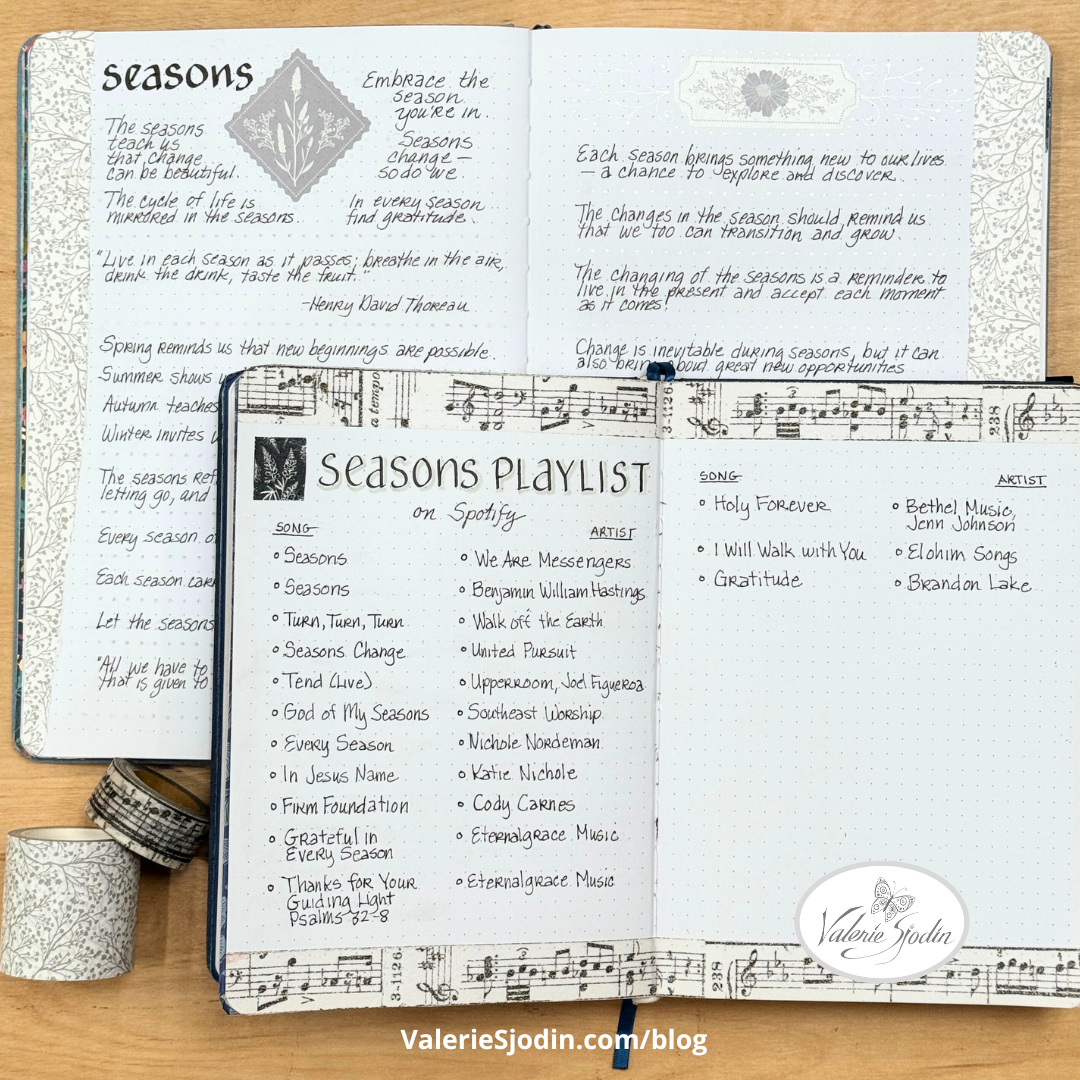 seasons
The seasons
teach us
that change
can be beautiful.
The cycle of life is
mirrored in the seasons.
Embrace the
season
you're in.
Seasons
change –
so do we.
In every season
find gratitude.
"Live in each season as it passes; breathe in the air,
drink the drink, taste the fruit."
-Henry David Thoreau
Spring reminds us that new beginnings are possible.
Summer shows
Autumn teaches
Winter invites
The seasons
letting go, and
Every season
Each season
Let the seasons
"All we have to
that is given to
Each season brings something new to our lives
– a chance to explore and discover.
The changes in the season should remind us
that we too can transition and grow.
The changing of the seasons is a reminder to
live in the present and accept each moment
as it comes!
Change is inevitable during seasons, but it can
also bring about great new opportunities
a tempo
3-1126
238
Seasons Playlist
on Spotify
Song Artist
Seasons We Are Messengers
Seasons Benjamin William Hastings
Turn, Turn, Turn Walk off the Earth
Seasons Change United Pursuit
Tend (Live) Upperroom, Joel Figueroa
God of My Seasons Southeast Worship
Every Season Nichole Nordeman
In Jesus Name Katie Nichole
Firm Foundation Cody Carnes
Grateful in Eternalgrace Music
Every Season
Thanks for Your Eternalgrace Music
Guiding Light
Psalms 32-8
Song Artist
Holy Forever Bethel Music,
Jenn Johnson
I Will Walk with You Elohim Songs
Gratitude Brandon Lake
3-1126
238
Valerie Sjodin
ValerieSjodin.com/blog